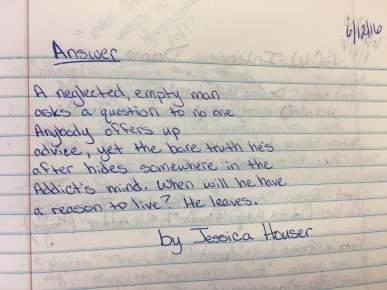 6/12/16
Answer
A neglected, empty man
asks a question to no one.
Anybody offers up
advice, yet the bare truth he's
after hides somewhere in the
Addict's mind. When will he have
a reason to live? He leaves.
by Jessica Houser